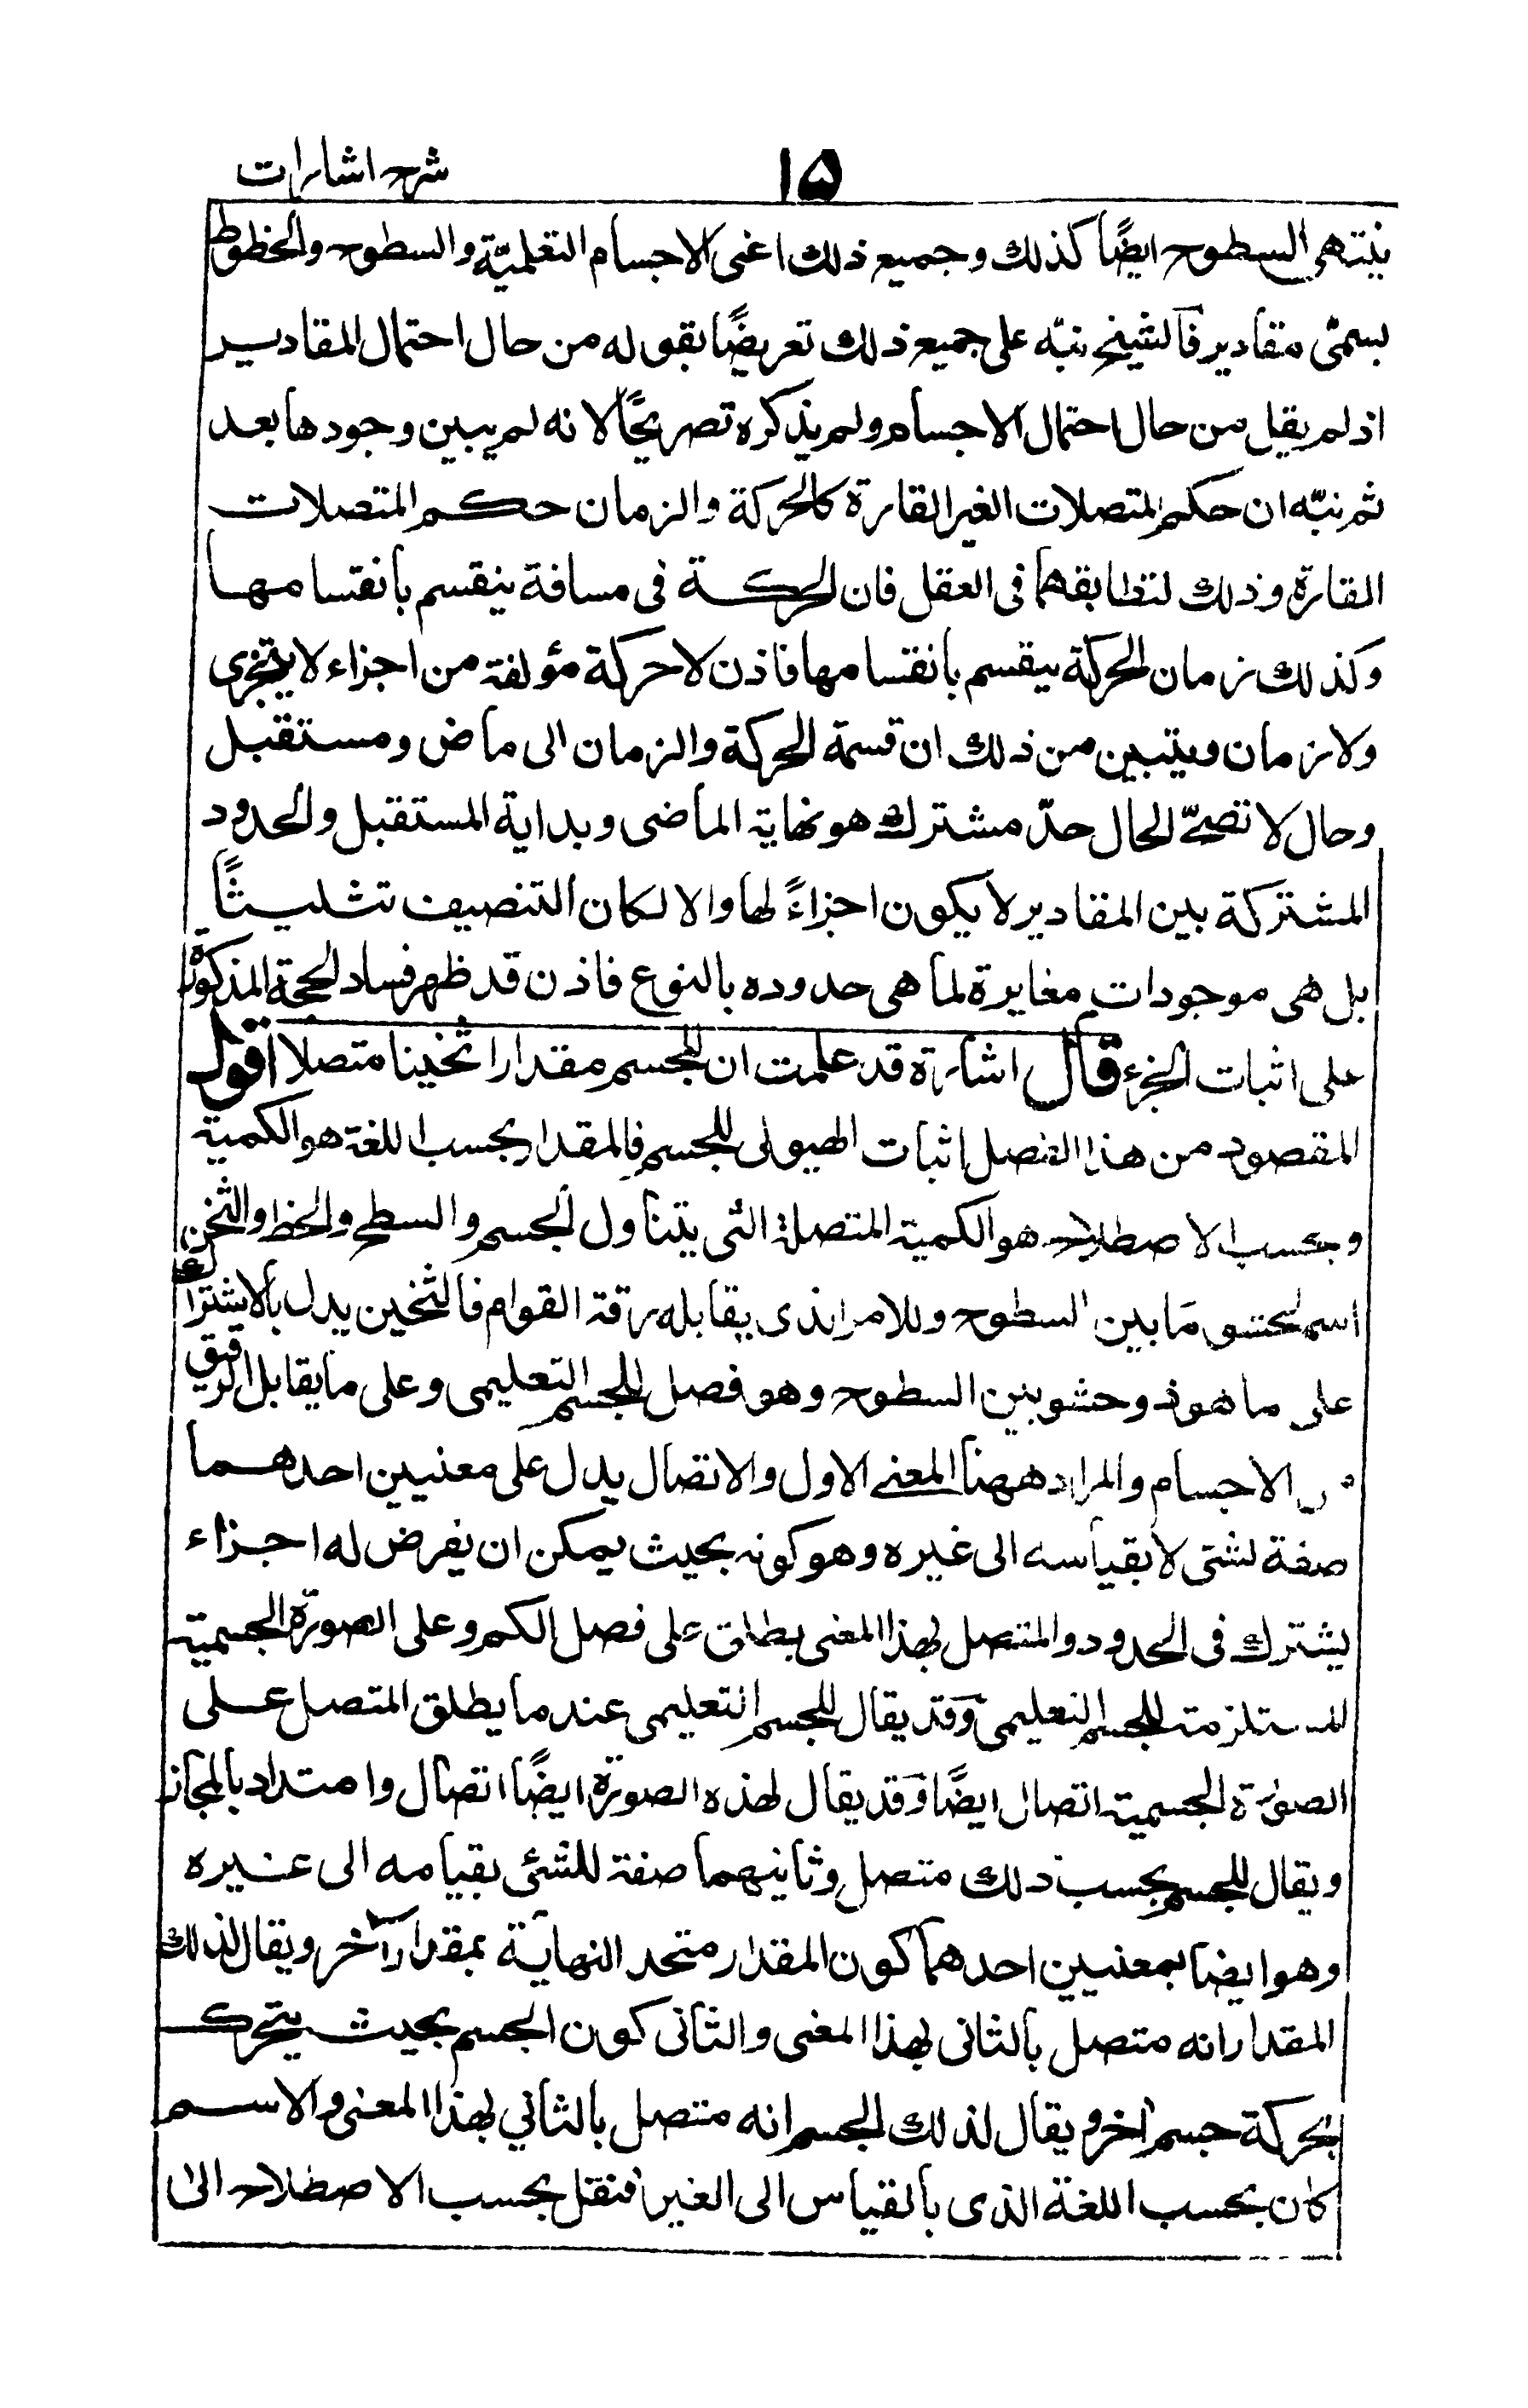 شرح اشارات
١٥
ينتهى السطوح ايضًا كذلك وجميع ذلك اعنى الاجسام التعلميّة والسطوح والخطوط
يسمّى مقادير فالشيخ نبّه على جميع ذلك تعريضًا بقوله من حال احتمال المقادير
اذ لم يقل من حال احتمال الاجسام ولم يذكره تصريحًا لانه لم يبين وجودها بعد
ثم نبّه ان حكم المتصلات الغير القارة كالحركة والزمان حكم المتصلات
القارة وذلك لتطابقهما فى العقل فان الحركة فى مسافة ينقسم بانقسامها
وكذلك زمان الحركة ينقسم بانقسامها فاذن لا حركة مؤلفة من اجزاء لا يتجزى
ولا زمان ويتبين من ذلك ان قسمة الحركة والزمان الى ماض ومستقبل
وحال لا تصحّ الحال حدّ مشترك هو نهاية الماضى وبداية المستقبل والحدود
المشتركة بين المقادير لا يكون اجزاءً لها والا لكان التنصيف تثليثًا
بل هى موجودات مغايرة لما هى حدوده بالنوع فاذن قد ظهر فساد الحجة المذكورة
على اثبات الجزء قال اشارة قد علمت ان للجسم مقدارا ثخينا متصلا اقول
المقصود من هذا الفصل اثبات الهيولى للجسم فالمقدار بحسب اللغة هو الكمية
وبحسب الاصطلاح هو الكمية المتصلة التى يتناول الجسم والسطح والخط والثخن
اسم لحشو ما بين السطوح وللامر الذى يقابله رقة القوام فالثخين يدل بالاشتراك
على ما هو ذو حشو بين السطوح وهو فصل للجسم التعليمى وعلى ما يقابل الرقيق
من الاجسام والمراد ههنا المعنى الاول والاتصال يدل على معنيين احدهما
صفة لشئ لا بقياسه الى غيره وهو كونه بحيث يمكن ان يفرض له اجزاء
يشترك فى الحدود والمتصل بهذا المعنى يطلق على فصل الكم وعلى الصورة الجسمية
المستلزمة للجسم التعليمى وقد يقال للجسم التعليمى عند ما يطلق المتصل على
الصورة الجسمية اتصال ايضًا وقد يقال لهذه الصورة ايضًا اتصال وامتداد بالمجاز
ويقال للجسم بحسب ذلك متصل وثانيهما صفة للشئ بقيامه الى غيره
وهو ايضا بمعنيين احدهما كون المقدار متحد النهاية بمقدار آخر ويقال لذلك
المقدار انه متصل بالثانى بهذا المعنى والثانى كون الجسم بحيث يتحرك
بحركة جسم اخر ويقال لذلك الجسم انه متصل بالثاني بهذا المعنى والاسم
كان بحسب اللغة الذى بالقياس الى الغير فنقل بحسب الاصطلاح الى